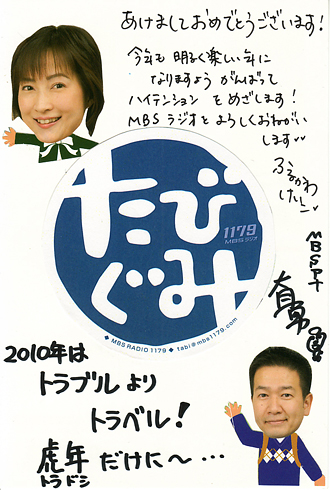 あけましておめでとうございます!
今年も明るく楽しい年に
なりますよう がんばって
ハイテンション をめざします!
MBSラジオをよろしくおねがい
します♡
ふるかわ
けいこ
たび
1179
MBSラジオ
ぐみ
◆ MBS RADIO 1179 ◆ tabi@mbs1179.com ◆
MBSアナ
2010年は
トラブルより
トラベル!
虎年だけに〜・・・
トラドシ